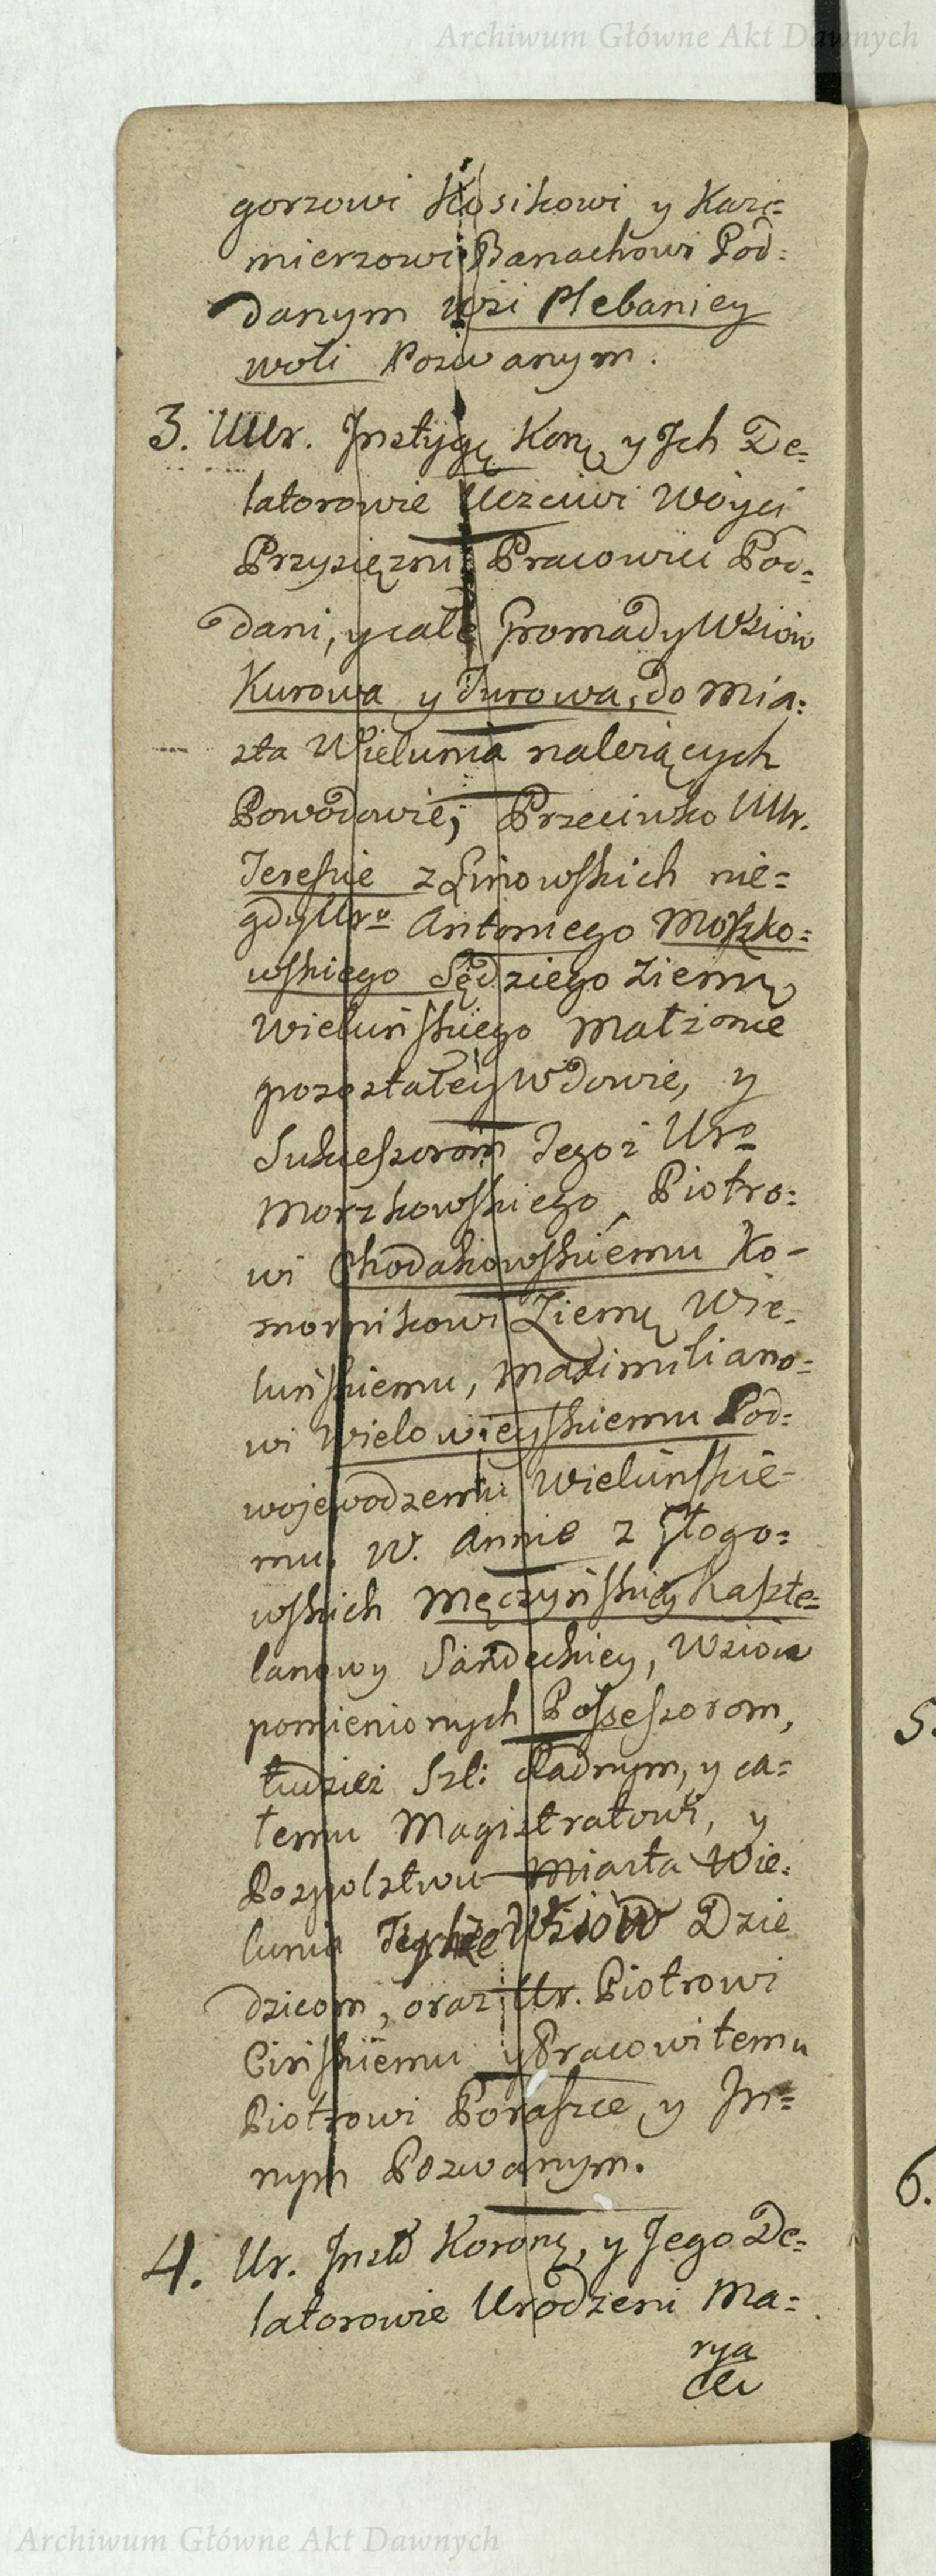 Archiwum Główne Akt Dawnych
gorzowi Kosikowi y Kazi=
mierzowi Banachowi Pod=
danym Wsi Plebaniey
woli Pozwanym.
3. UUr. Instygę Konę y Ich De=
latorowie Uczciwi Woyci
Przysiężni Pracowici Pod=
dani, y całe Gromady Wsiow
Kurowa y Turowa, do Mia=
sta Wielunia należących
Powodowie, Przeciwko UUr.
Teressie z Linowskich nie=
gdy Uro Antoniego Moszko=
wskiego Sędziego Ziemę
Wieluńskiego Małżonce
pozostałey Wdowie, y
Sukcessorom Tegoż Uro
Morzkowskiego, Piotro=
wi Chodakowskiemu Ko-
mornikowi Ziemę Wie=
luńskiemu, Maximiliano=
wi Wielowieyskiemu Pod=
wojewodzemu Wieluńskie-
mu, W. Annie z Głogo=
wskich Męczyńskiey Kaszte=
lanowy Sandeckiey, Wsiow
pomienionych Possessorom,
tudzież Szl: Radnym, y ca=
łemu Magistratowi, y
Pospolstwu Miasta Wie=
lunia Tychże Wsiow Dzie
dzicom, oraz Ur. Piotrowi
Cińskiemu y Pracowitemu
Piotrowi Poraszce, y In=
nym Pozwanym.
4. Ur. Inst Koronę, y Jego De=
latorowie Urodzeni Ma=
rya
5.
6.
Archiwum Główne Akt Dawnych